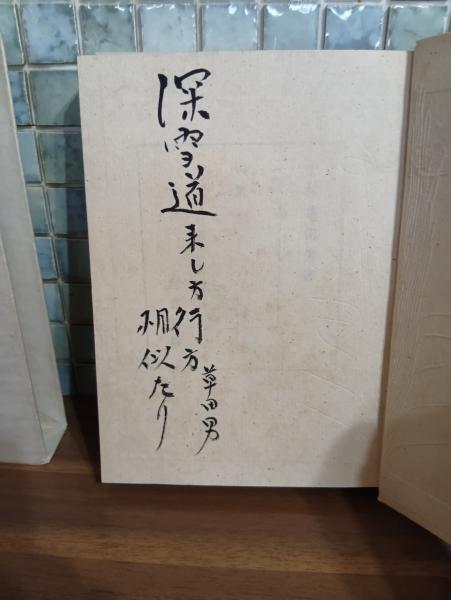 深雪道来し方行方
相似たり
草田男